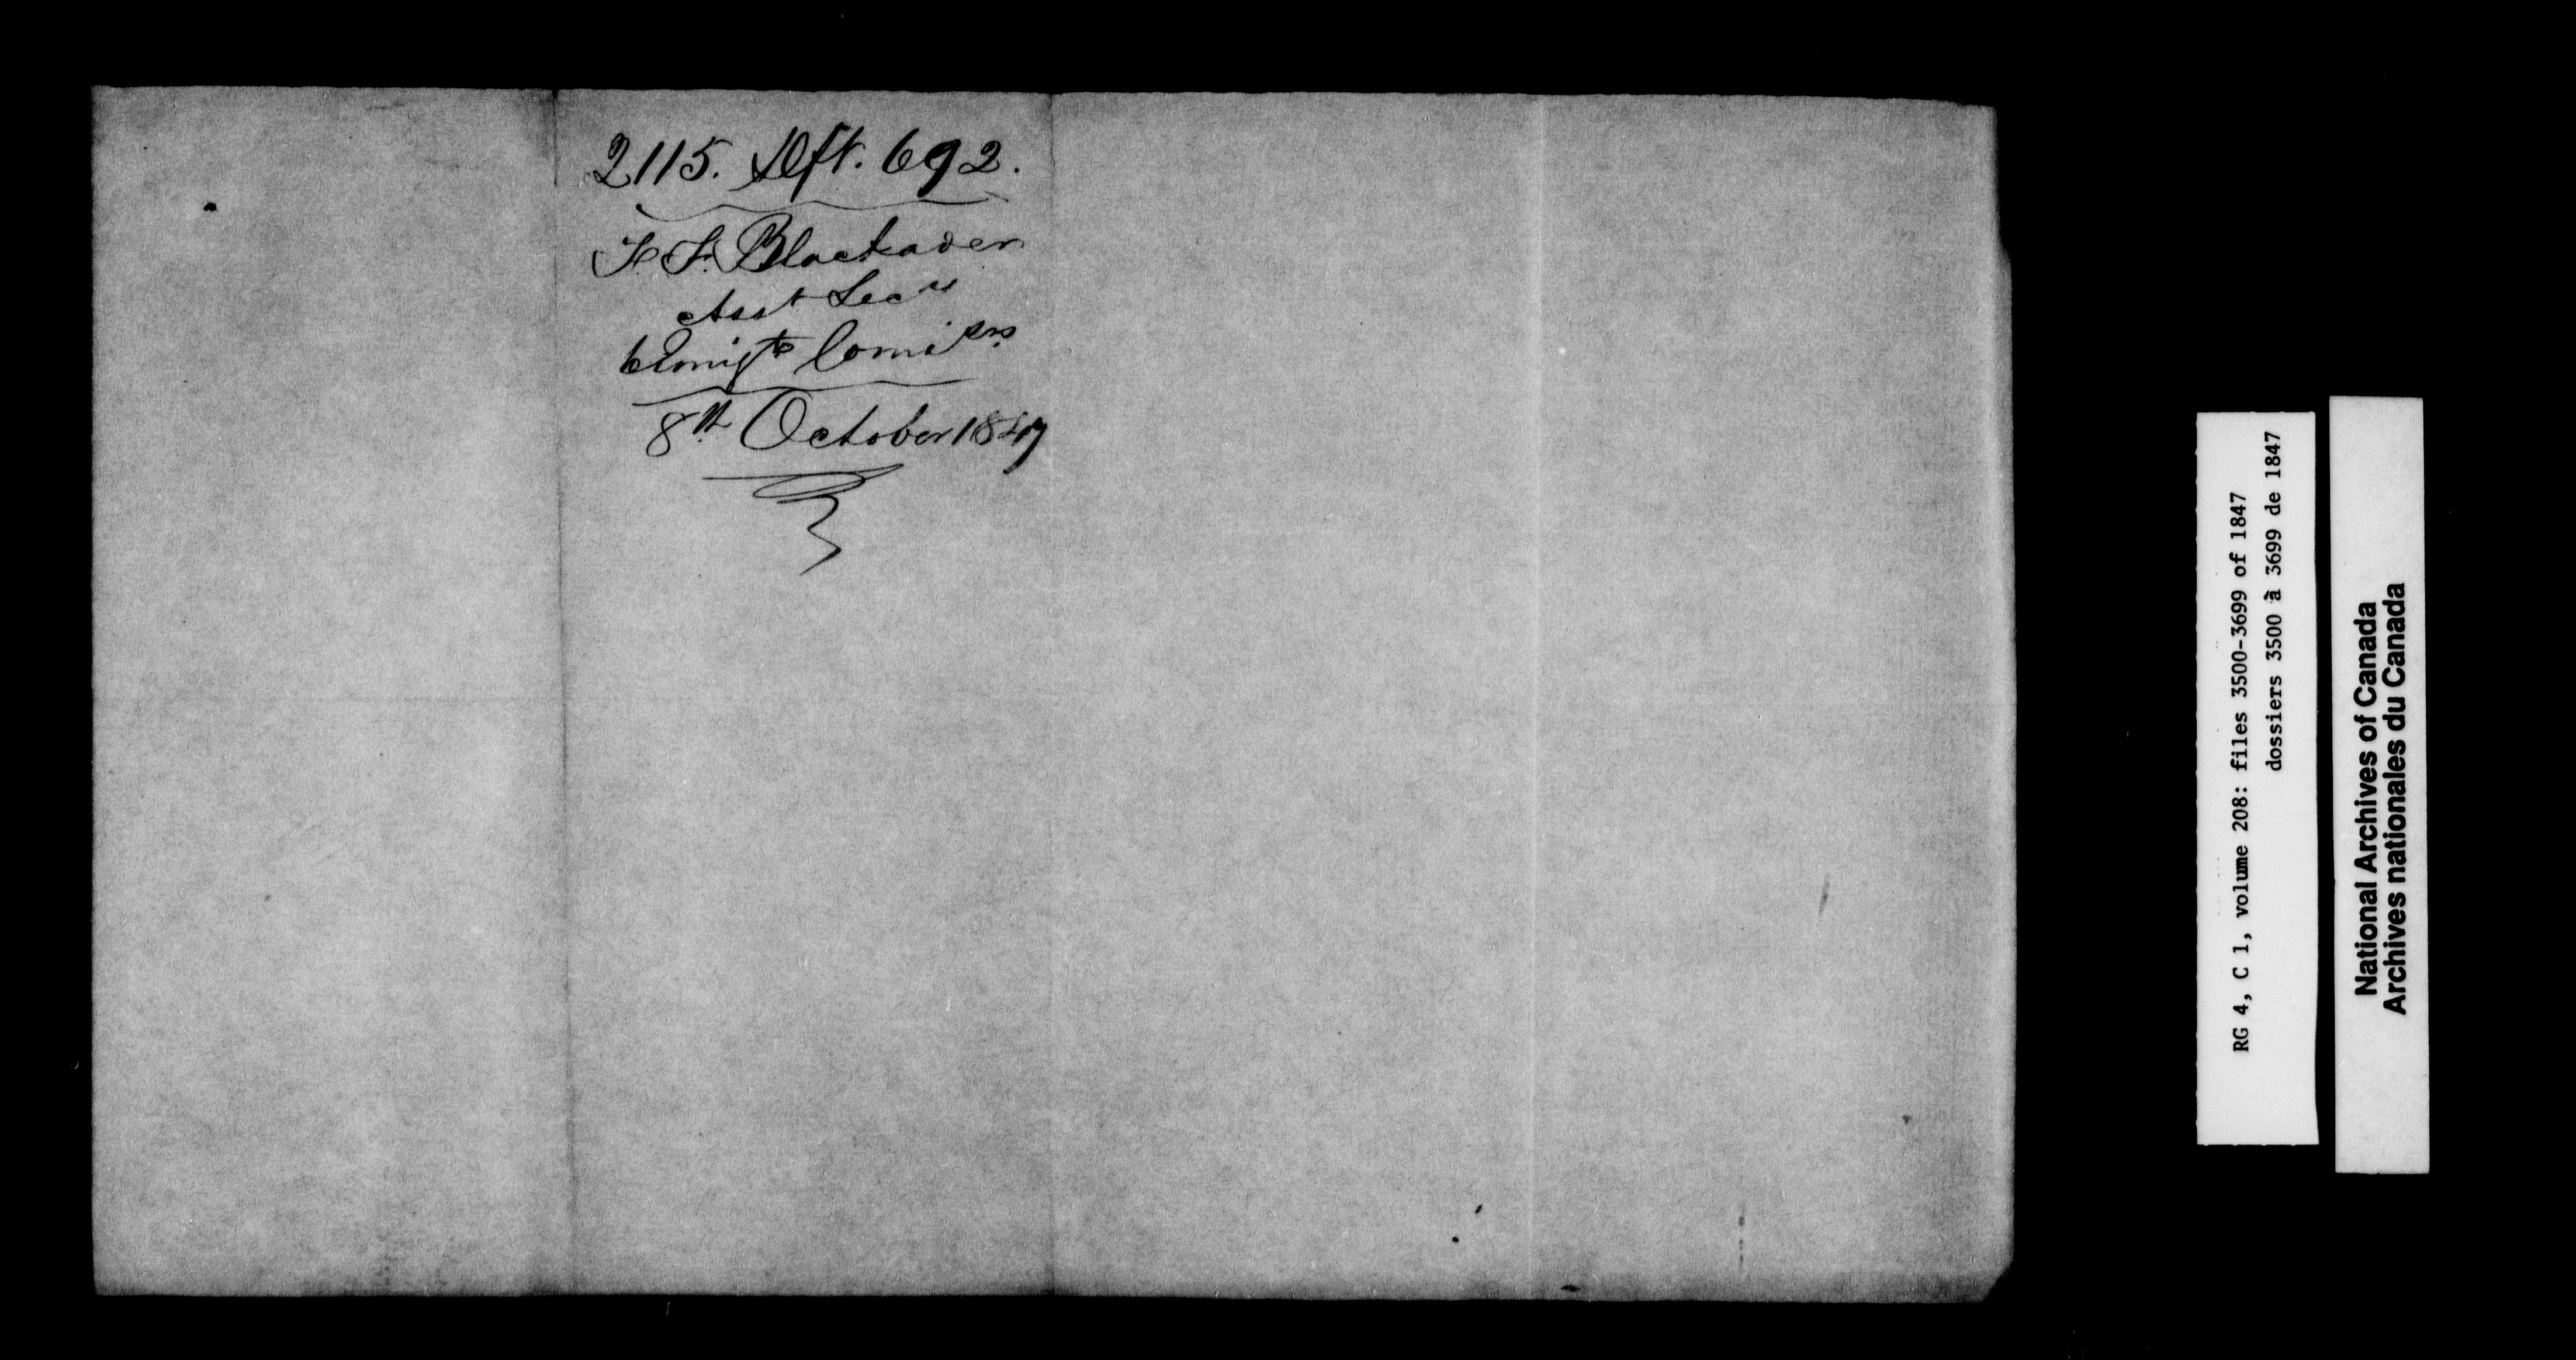 2115. Dft. 692.
F. F. Blackader
Asst Secy
Emigt Comisrs
8th October 1847
RG 4, C 1, volume 208: files 3500-3699 of 1847
dossiers 3500 à 3699 de 1847
National Archives of Canada
Archives nationales du Canada